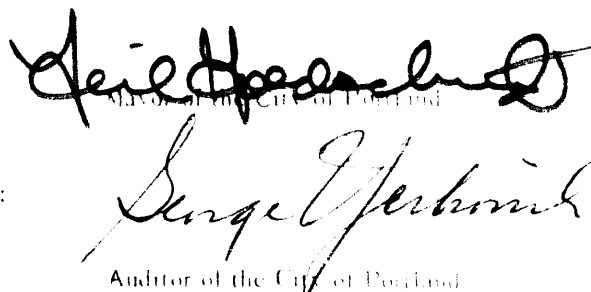 Neil Goldschmidt
Mayor of the City of Portland
:
George Yerkovich
Auditor of the City of Portland